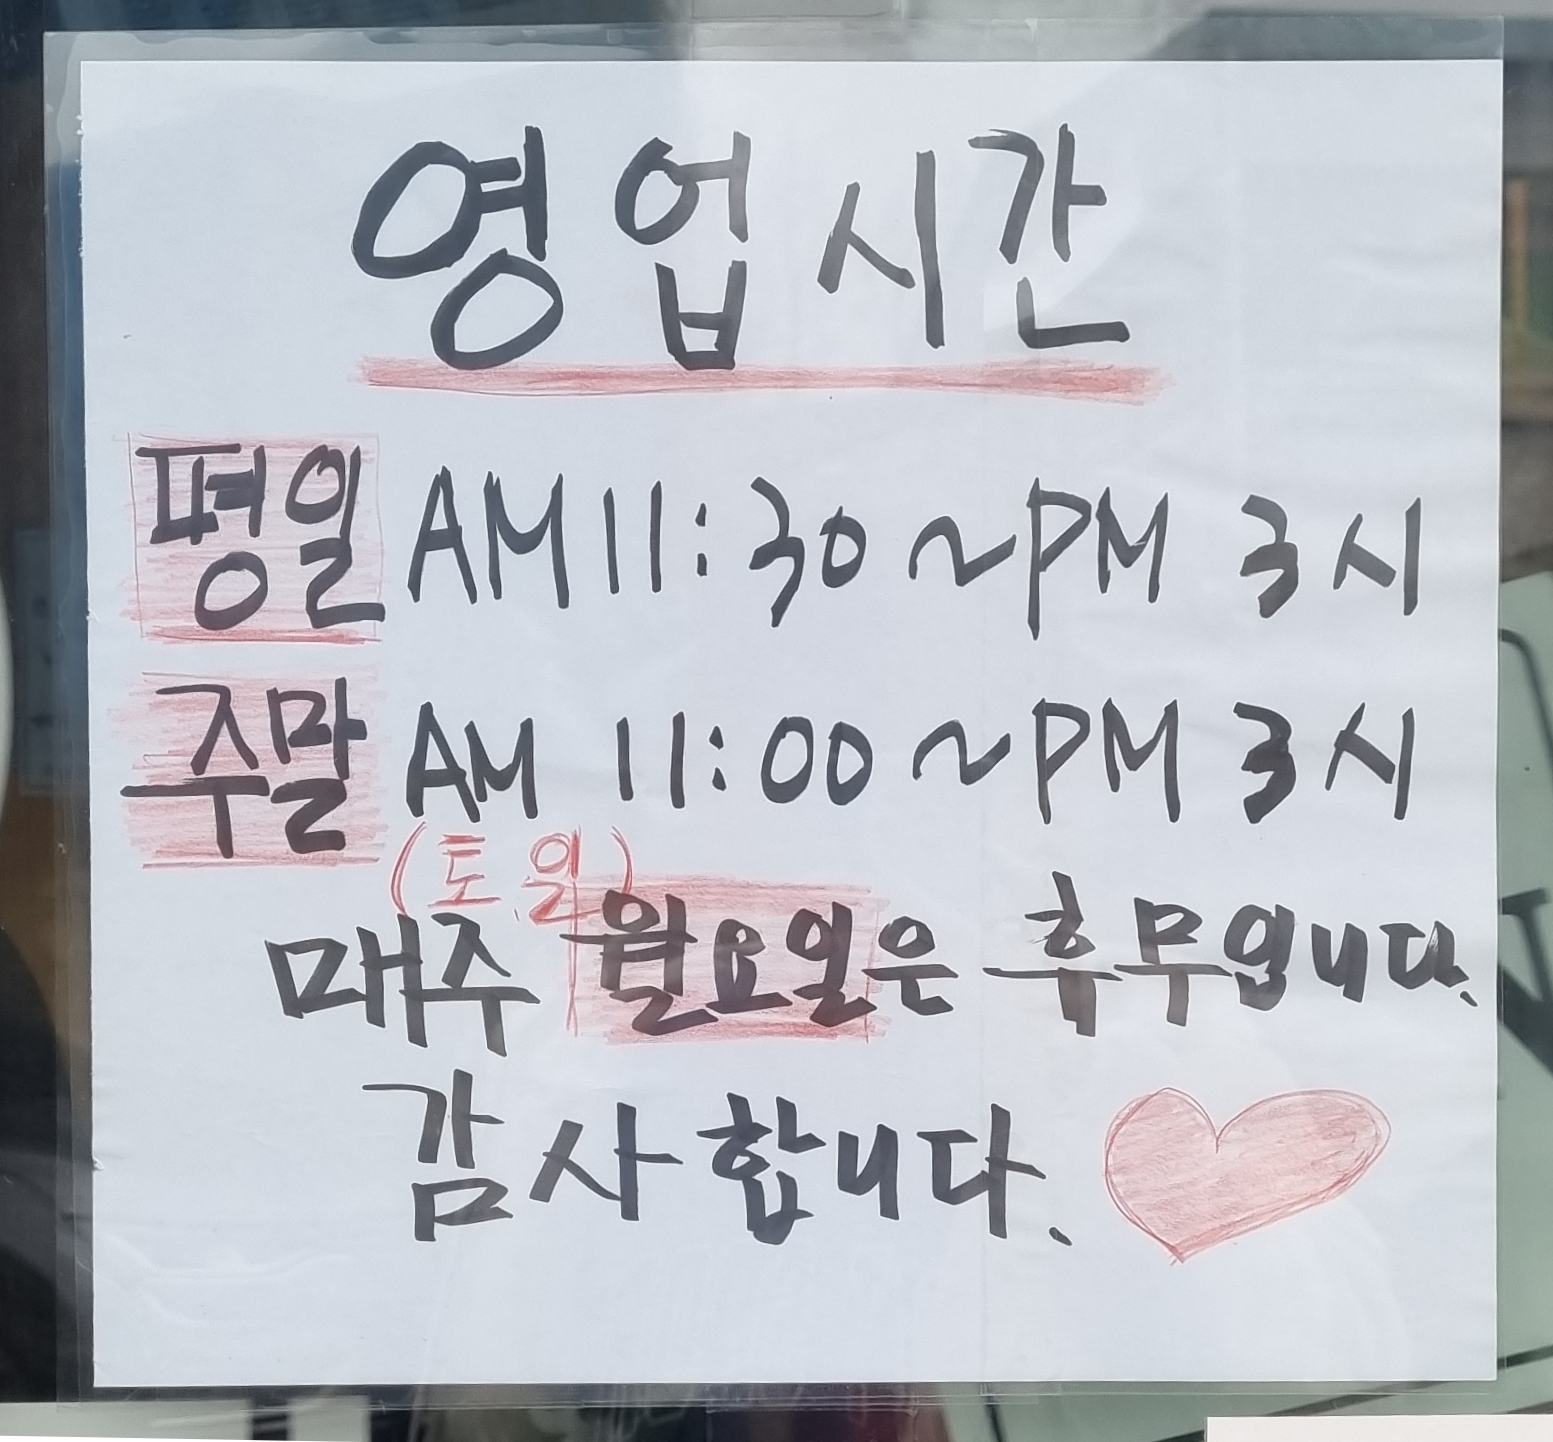 영업시간
평일 AM 11:30~PM 3시
주말 AM 11:00~PM 3시
(토.일)
매주 월요일은 휴무입니다.
감사합니다.